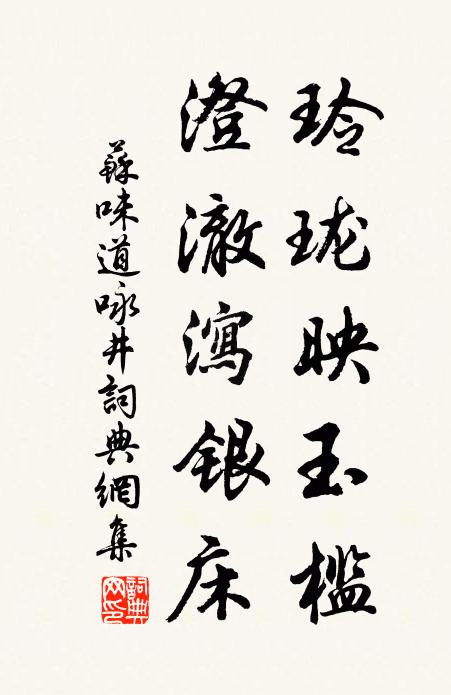 玲珑映玉槛
澄澈瀉银床
蘇味道咏井詞典網集
詞典网印